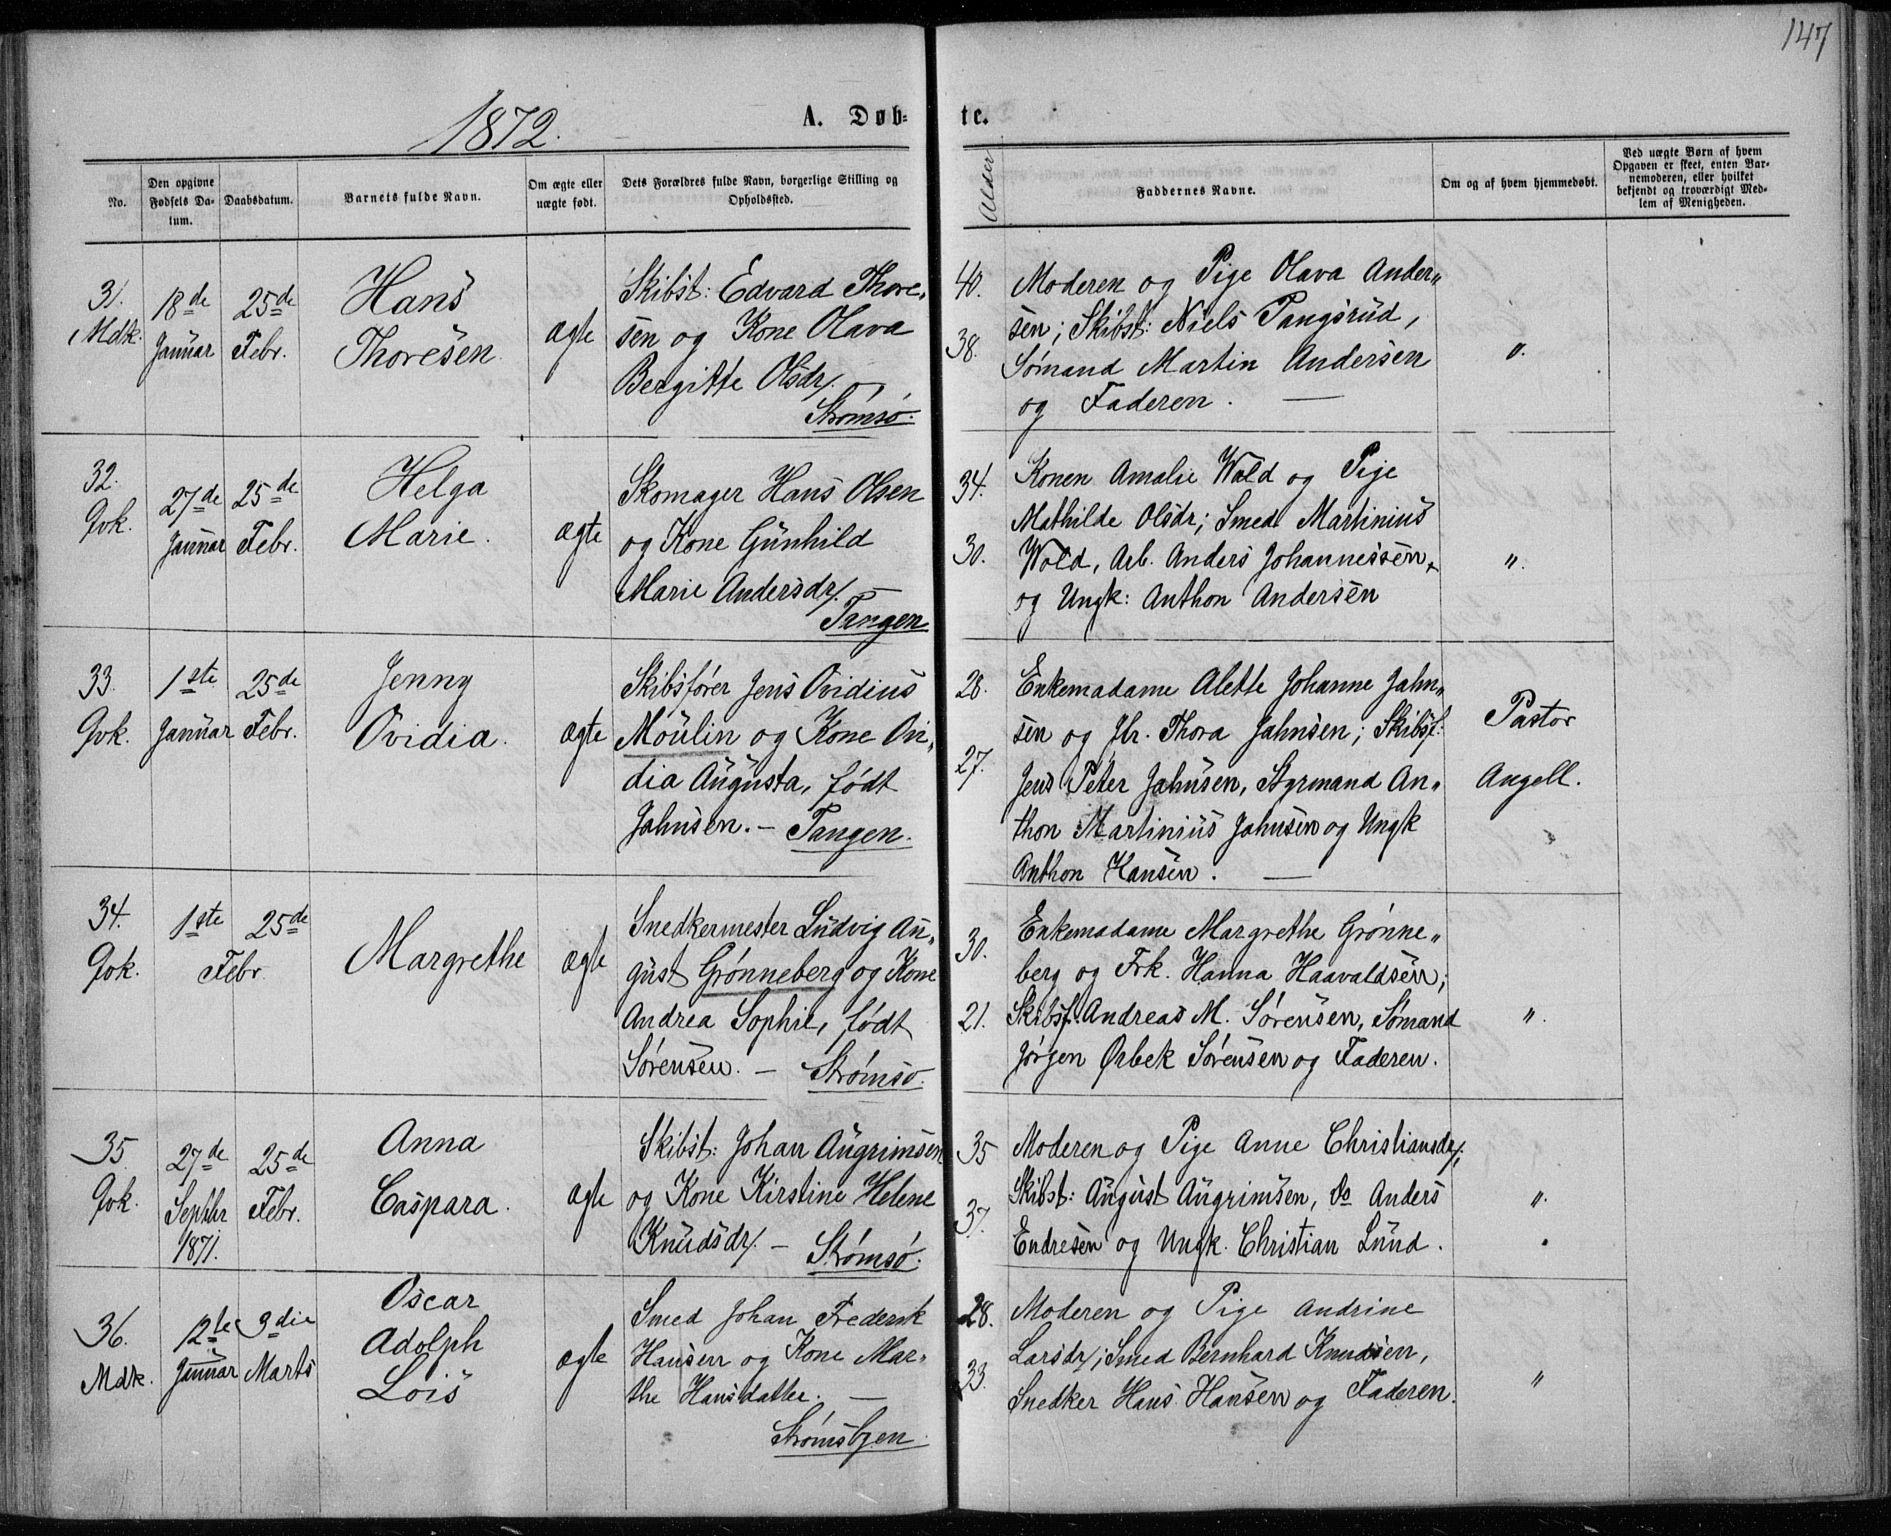 147
1872.
A. Døb-
te.
No.
Den opgivne Fødsels Da-
tum.
Daabsdatum.
Barnets fulde Navn.
Om ægte eller
uægte født.
Dets Forældres fulde Navn, borgerlige Stilling og
Opholdsted.
Alder
Faddernes Navne.
Om og af hvem hjemmedøbt.
Ved uægte Børn af hvem
Opgaven er skeet, enten Bar-
nemoderen, eller hvilket
bekjendt og troværdigt Med-
lem af Menigheden.
31.
Mdk.
18de
Januar
25de
Febr.
Hans
Thoresen
ægte
Skibst: Edvard Thore-
sen og Kone Olava
Bergitte Olsdr.
Strømsø.
40.
38.
Moderen og Pige Olava Ander-
sen; Skibst: Niels Pangsrud,
Sømand Martin Andersen
og Faderen. —
".
32.
Qvk.
27de
Januar
25de
Febr.
Helga
Marie.
ægte
Skomager Hans Olsen
og Kone Gunhild
Marie Andersdr. —
Tangen
34.
30.
Konen Amalie Wold og Pige
Mathilde Olsdr; Smed Martinius
Wold, Arb. Anders Johannessen,
og Ungk: Anthon Andersen
".
33.
Qvk.
1ste
Januar
25de
Febr.
Jenny
Ovidia.
ægte
Skibsfører Jens Ovidius
Moulin og Kone Ovi-
dia Augusta, født
Jahnsen. — Tangen.
28.
27.
Enkemadame Alette Johanne Jahn-
sen og Jfr. Thora Jahnsen; Skibsf:
Jens Peter Jahnsen, Styrmand An-
thon Martinius Jahnsen og Ungk
Anthon Hansen. —
Pastor
Angell.
34.
Qvk.
1ste
25de
Febr.
Margrethe
ægte
Snedkermester Ludvig Au-
gust Grønneberg og Kone
Andrea Sophie, født
Sørensen. — Strømsø.
30.
21.
Enkemadame Margrethe Grønne-
berg og Frk. Hanna Haavaldsen;
Skibsf. Andreas M. Sørensen, Sømand
Jørgen Ørbek Sørensen og Faderen.
".
35.
Qvk.
27de
Septbr
1871.
25de
Febr.
Anna
Caspara.
ægte
Skibst: Johan Augrimsen
og Kone Kirstine Helene
Knudsdr. — Strømsø.
35
37.
Moderen og Pige Anne Christiansdr;
Skibst: August Augrimsen, do Anders
Endresen og Ungk. Christian Lund.
".
36.
Mdk.
12te
Januar
3die
Marts
Oscar
Adolph
Lois
ægte
Smed Johan Frederik
Hansen og Kone Mar-
the Hansdatter. —
Strømsbyen.
28.
33.
Moderen og Pige Andrine
Larsdr; Smed Bernhard Knudsen,
Snedker Hans Hansen og Faderen.
"